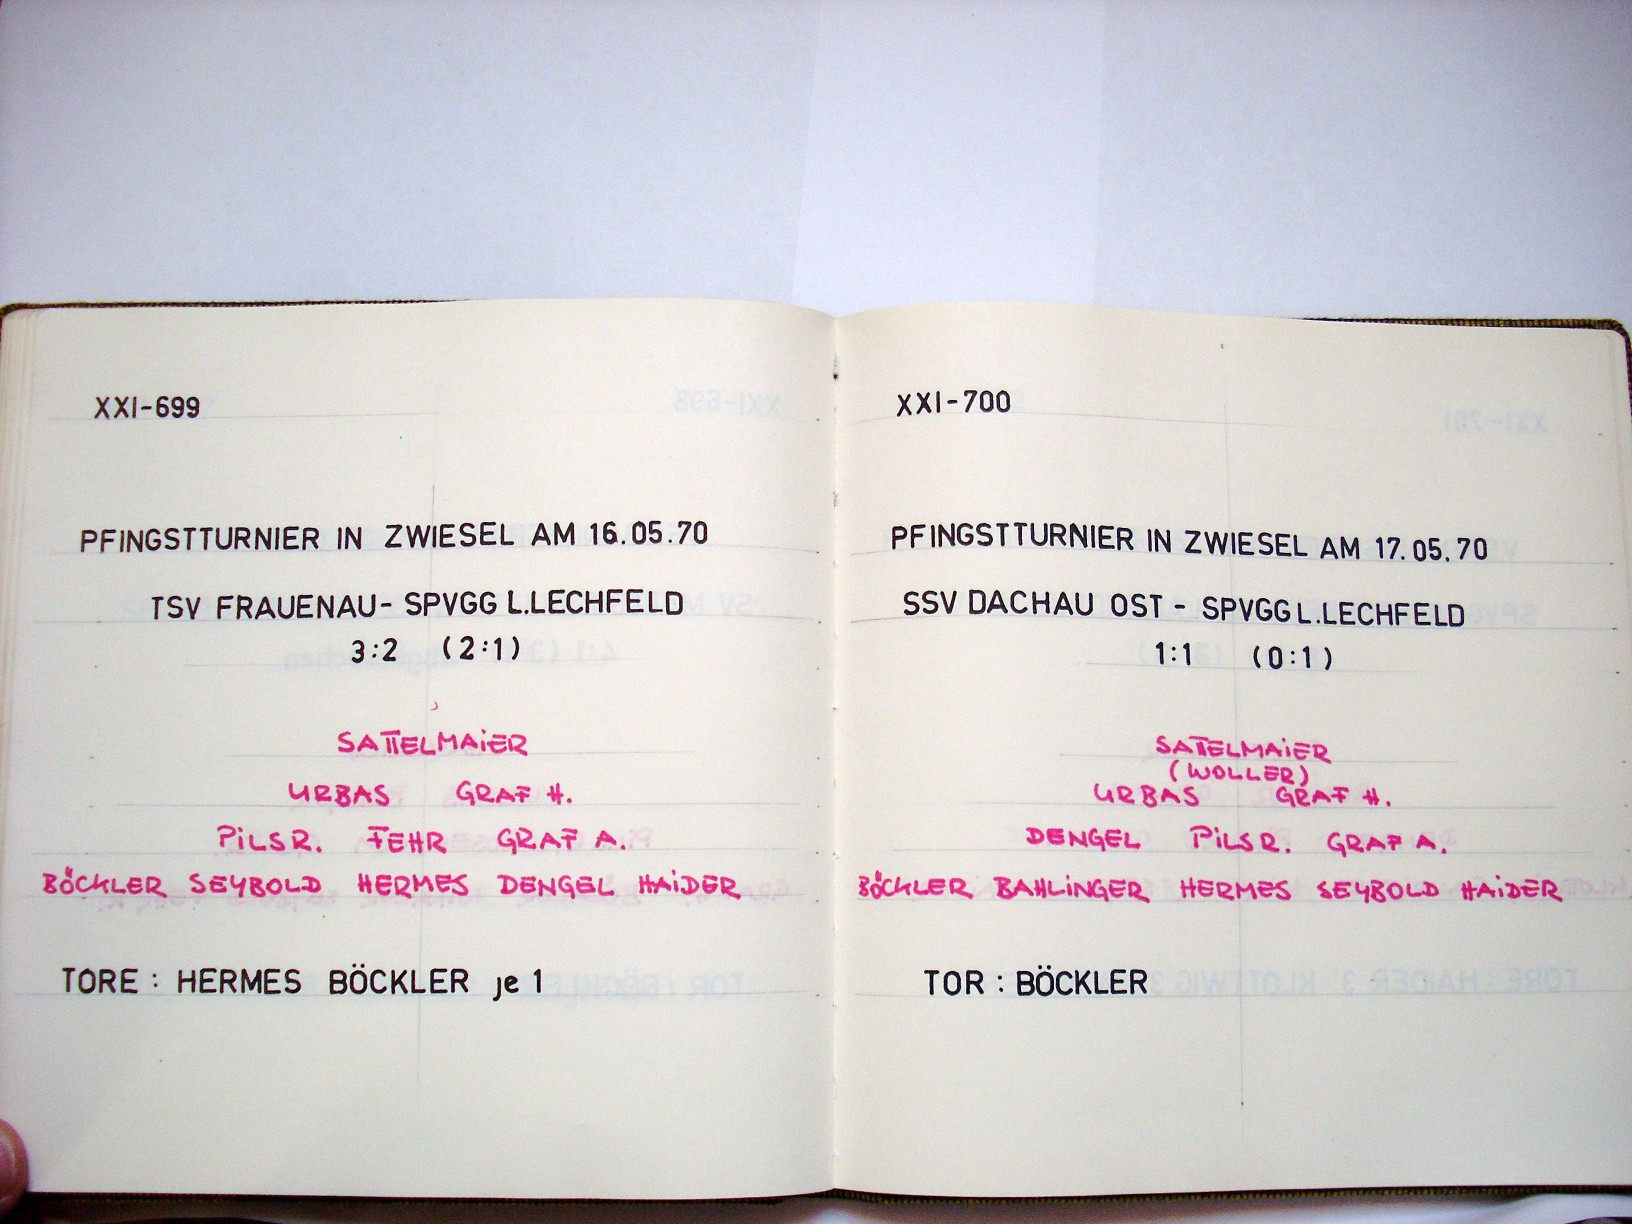 XXI-699
PFINGSTTURNIER IN ZWIESEL AM 16.05.70
TSV FRAUENAU- SPVGG L.LECHFELD
3:2 (2:1)
SATTELMAIER
URBAS GRAF H.
PILSR. FEHR GRAF A.
BÖCKLER SEYBOLD HERMES DENGEL HAIDER
TORE: HERMES BÖCKLER je 1
XXI-700
PFINGSTTURNIER IN ZWIESEL AM 17.05.70
SSV DACHAU OST - SPVGG L.LECHFELD
1:1 (0:1)
SATTELMAIER
(WOLLER)
URBAS GRAF H.
DENGEL PILSR. GRAF A.
BÖCKLER BAHLINGER HERMES SEYBOLD HAIDER
TOR: BÖCKLER